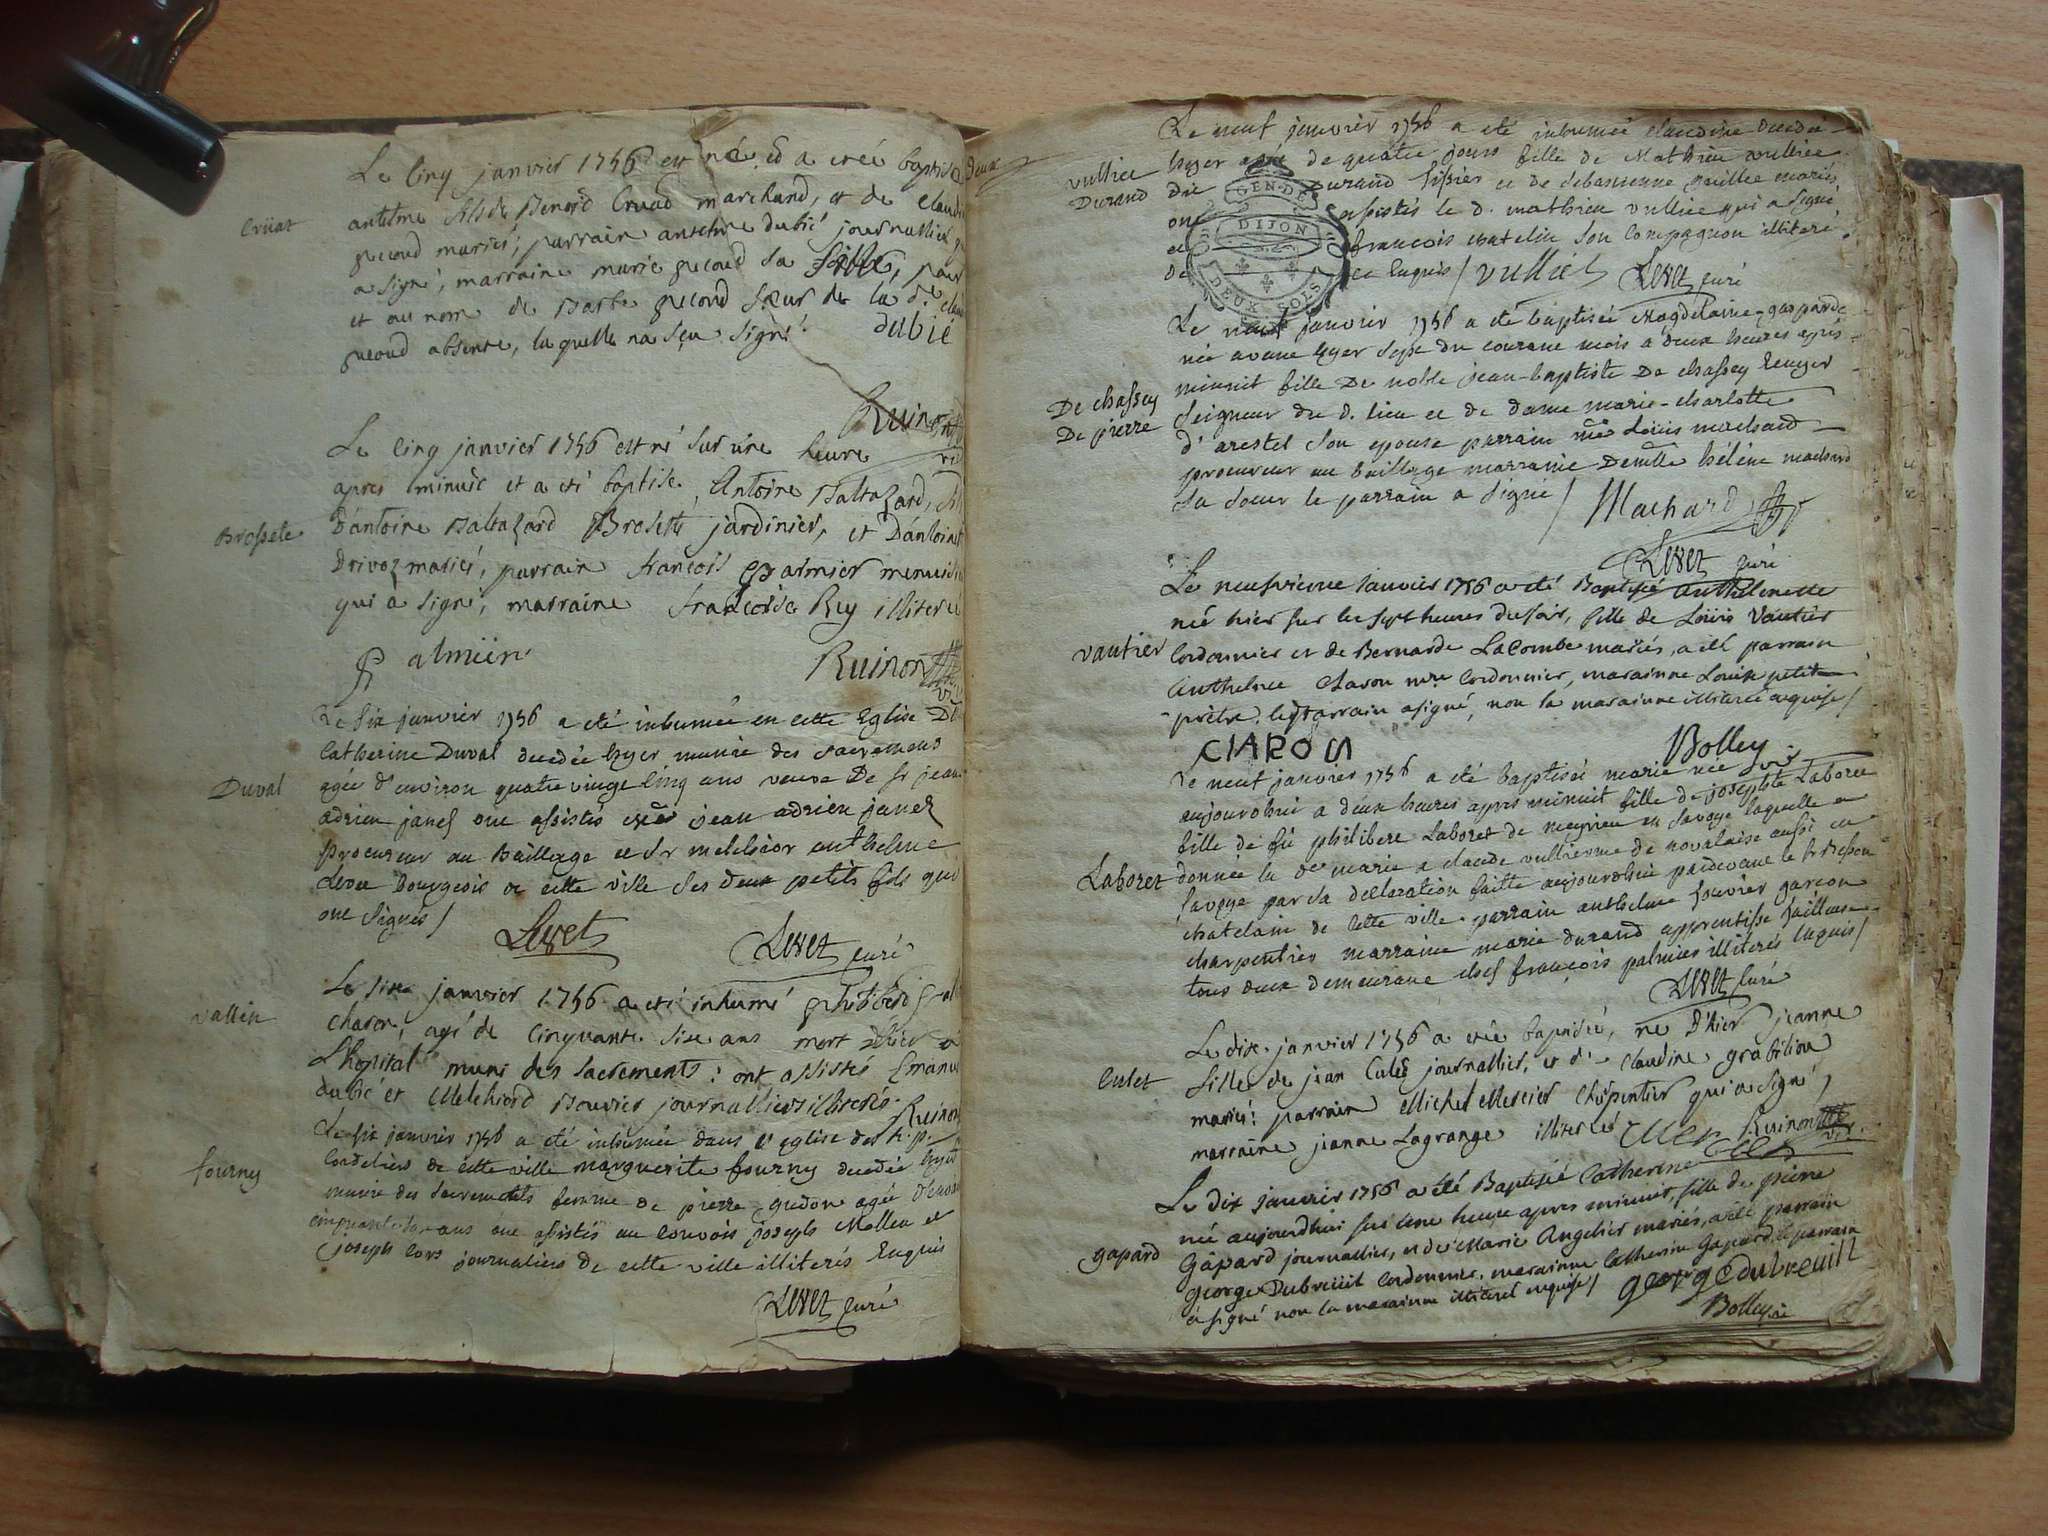 Cruat
Le Cinq janvier 1756 est né et a été baptisé
antelme fils de Benoid Cruad marchand, et de claudi
gueoud mariés, parrain antelme dubié journallier
a signé, marraine marie gueoud sa fille, pour
et au nom de Barbe gueoud sœur de la dte
gueoud absente, la quelle na sçu signé. dubié
Ruinon
Brossete
Le Cinq janvier 1756 est né sur une heure
apres minuit et a eté baptisé Antoine Baltazard,
D'antoine Baltazard Brosette jardinier, et D'antoinet
Drivoz mariés, parrain françois Palmier menuisi
qui a signé, marraine françoise Rey illiterée
Palmier Ruinon
Duval
Le six janvier 1756 a eté inhumée en cette Eglise
Catherine Duval decedée hyer munie des sacremens
agée d'environ quatre vingt cinq ans veuve De sr jean
adrien janez ont assistés jean adrien janez
procureur au Bailliage et Sr melchior anthelme
Levet Bourgeois de cette ville ses deux petits fils qui
ont signés/
Levet Levet curé
vallin
Le six janvier 1756 a eté inhumé
charon, agé de Cinquante six ans mort
L'hopital muni des sacrements: ont assistés Emanu
dubié et Melchiord Bouvier journalliers illiterés.
Ruinon
fourny
Le six janvier 1756 a eté inhumée dans l'eglise des R. p.
Cordeliers de cette ville marguerite fourny decedée hyer
munie des sacrements femme de pierre guedon agée d'environ
cinquante ans ont assistés au convois joseph Molleu et
joseph Cors journaliers de cette ville illiterés Enquis
Levet curé
deux
vullier
Durand
Le neuf janvier 1756 a eté inhumée claudine decedée
hyer agée de quatre jours fille de Mathieu vulliee
dit Durand et de sebastienne mariés
ont assistés le d. mathieu vulliee qui a signé
et francois chatelin son Compagnon illiteré
de ce Enquis / vulliet Levet curé
GEN. DE
DIJON
DEUX SOLS
De chassey
De pierre
Le neuf janvier 1756 a eté baptisée Magdelaine gasparde
née avant hyer sept du courant mois a deux heures après
minuit fille De noble jean-baptiste De chassey Ecuyer
Seigneur du d. lieu et de dame marie-charlotte
d'arestel son epouse parrain Louis machard
procureur au bailliage marraine Demlle héléne machard
sa sœur le parrain a signé / Machard
Levet curé
vautier
Le neufvieme janvier 1756 a eté Baptisée anthelmette
née hier sur les sept heures du soir, fille de Loüis Vautier
Cordonnier et de Bernarde LaCombe mariés, a eté parrain
Anthelme Charon mre Cordonnier, marainne Louise petit
prétre. le parrain a signé, non la marainne illiterée enquise /
CHAROn Bolley vic
Laboret
Le neuf janvier 1756 a eté baptisée marie née
aujourdhui a deux heures apres minuit fille de josephte Laboret
fille de fû philibert Laboret de meyrieu en savoye laquelle a
donnée la de marie a claude vullierme de novalaise aussi en
savoye par sa declaration faitte aujourdhui pardevant le Sr Besson
chatelain de cette ville. parrain anthelme Bouvier garcon
charpentier marraine marie durand apprentisse tailleuse
tous deux demeurant chez françois palmier illiterés Enquis /
Levet curé
Culet
Le dix janvier 1756 a eté baptisée, né d'hier jeanne
fille de jean Culet journallier, et de Claudine grabilion
mariés: parrain Michel Mercier Charpentier qui a signé,
marraine jeanne Lagrange illiterée Mer cier Ruinon
vic.
gapard
Le dix janvier 1756 a eté Baptisée Catherine
née aujourdhui sur une heure apres minuit, fille de pierre
Gapard journallier, et de Marie Angelier mariés, a eté parrain
george Dubreüil Cordonnier, marainne Catherine Gapard, le parrain
a signé non la marainne illiteré enquise / george dubreuill
Bolley vic